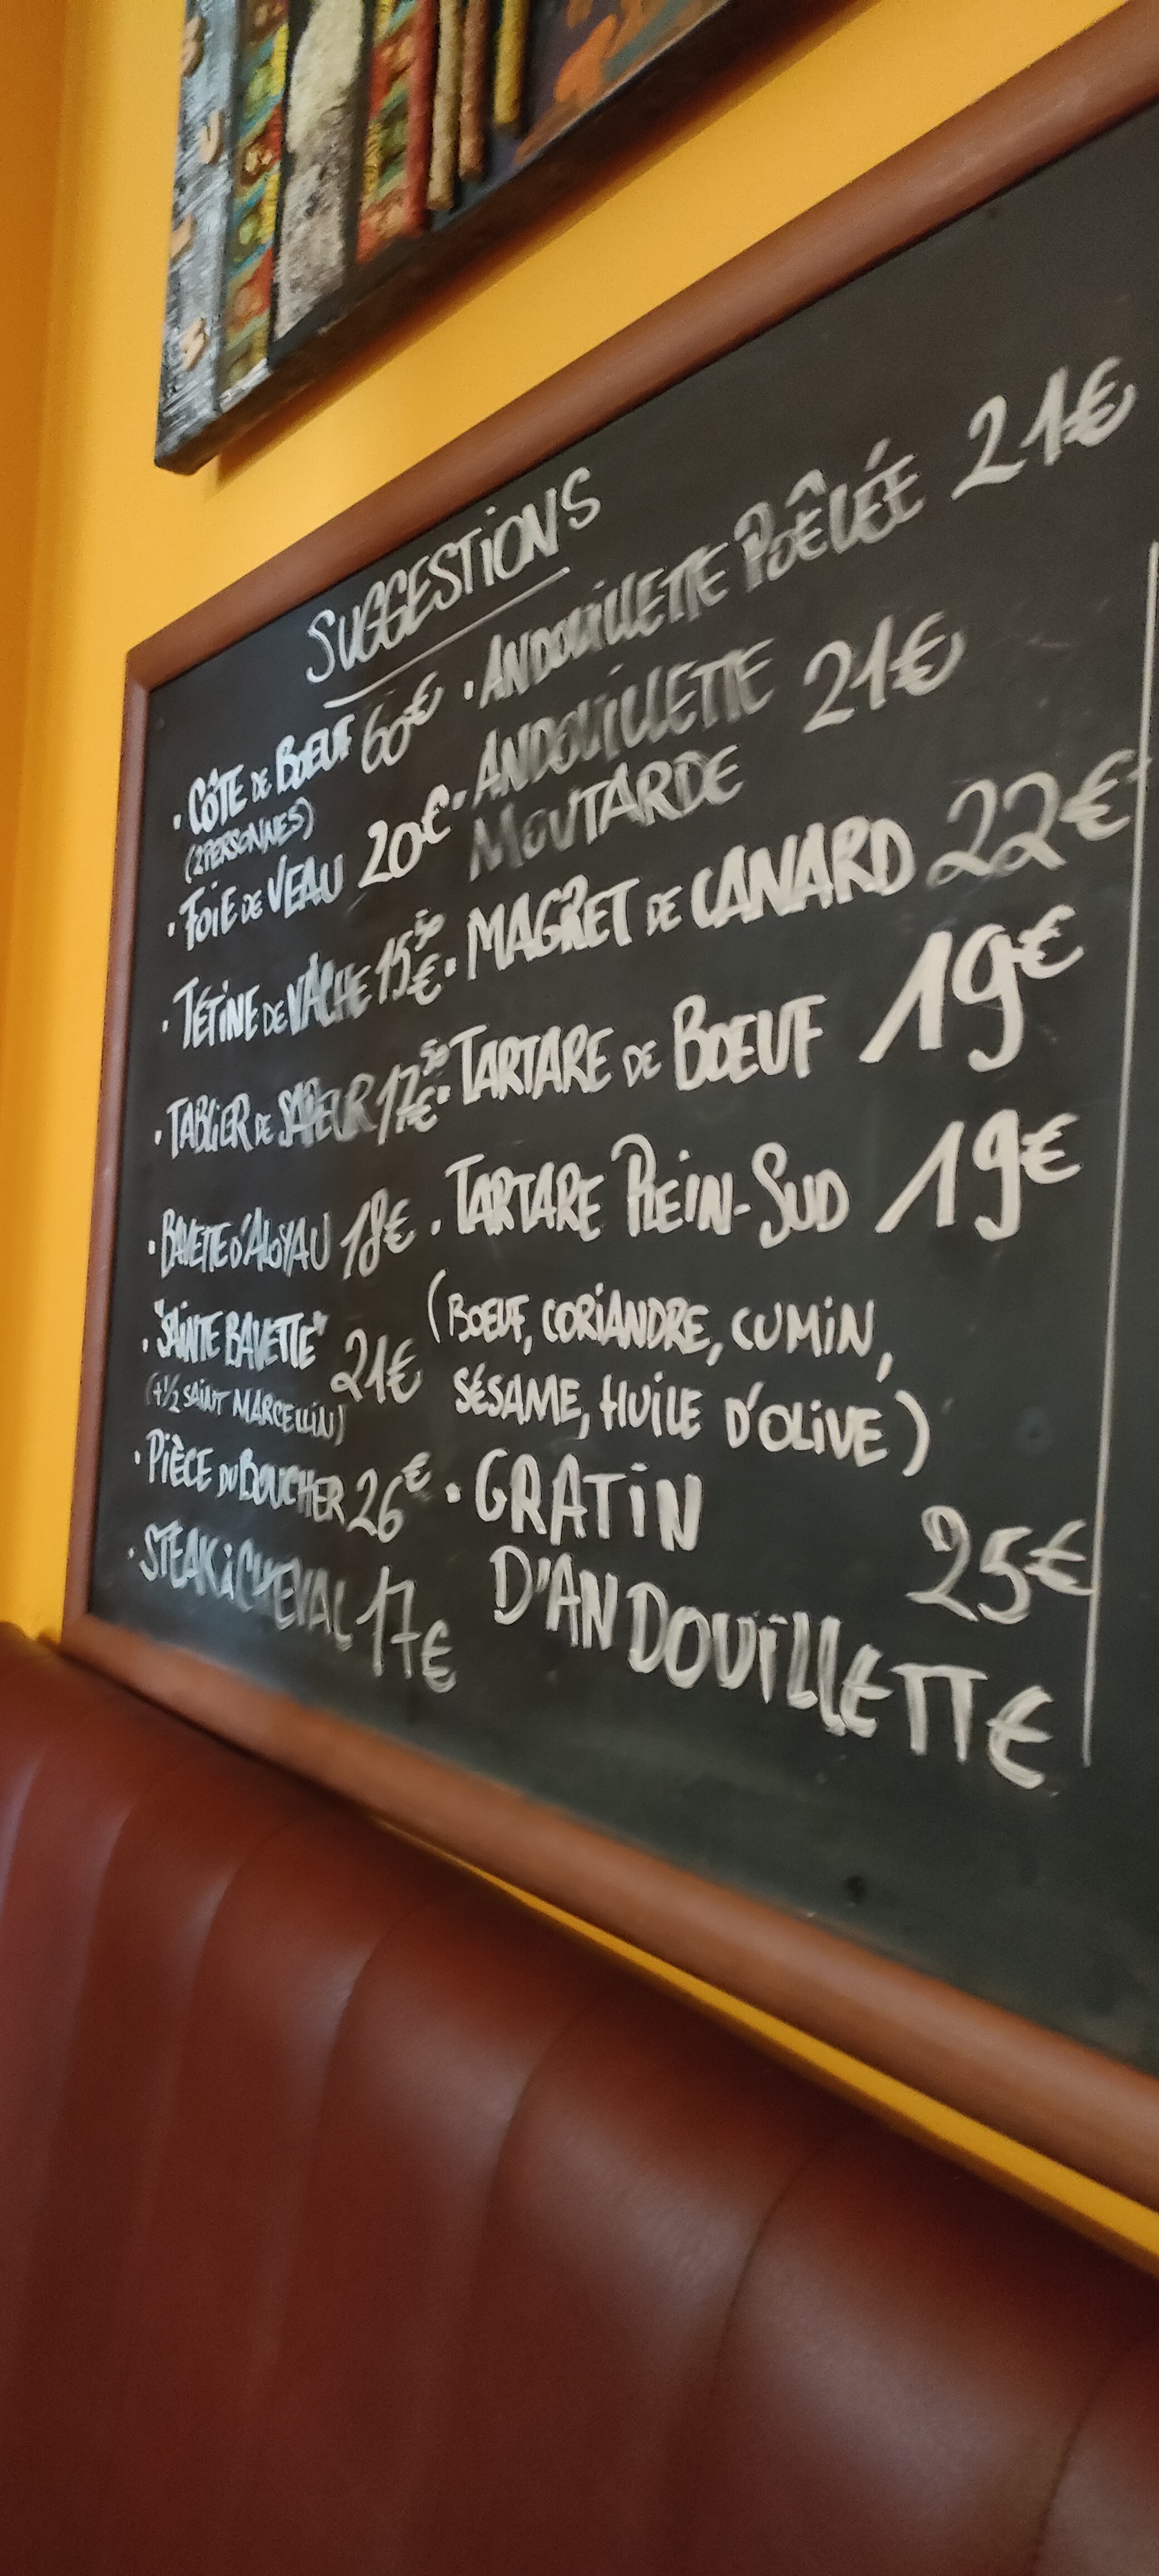 SUGGESTIONS
· CÔTE DE BOEUF 60€
(2 PERSONNES)
· FOIE DE VEAU 20€
· TÉTINE DE VACHE 15€50
· TABLIER DE SAPEUR 17€50
· BAVETTE D'ALOYAU 18€
· "SAINTE BAVETTE" 21€
(+1/2 SAINT MARCELLIN)
· PIÈCE DU BOUCHER 26€
· STEAK i CHEVAL 17€
· ANDOUILLETTE POÊLÉE 21€
· ANDOUILLETTE 21€
MOUTARDE
· MAGRET DE CANARD 22€
· TARTARE DE BOEUF 19€
· TARTARE PLEIN-SUD 19€
(BOEUF, CORIANDRE, CUMIN,
SÉSAME, HUILE D'OLIVE)
· GRATIN
D'ANDOUILLETTE 25€